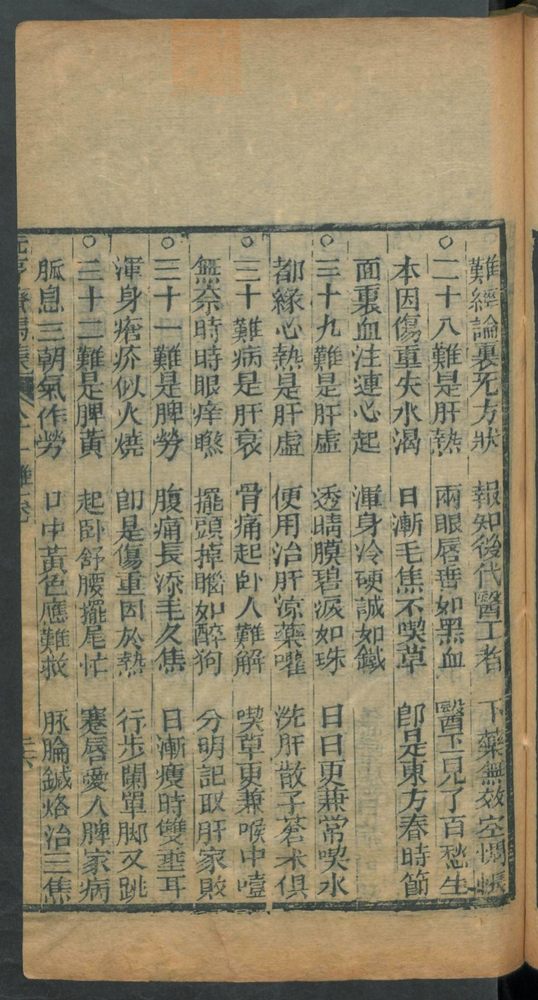 難經論裏死方狀　報知後代醫工者　下藥無效空惆悵
○二十八難是肝熱　兩眼唇垂如黑血　醫工見了百愁生
本因傷重失水渴　日漸毛焦不喫草　卽是東方春時節
面裏血注連心起　渾身冷硬誠如鐵
○二十九難是肝虛　透睛膜碧淚如珠　日日更兼常喫水
都緣心熱是肝虛　便用治肝涼藥嚾　洗肝散子蒼朮俱
○三十難病是肝衰　骨痛起臥人難解　喫草更兼喉中噎
無奈時時眼痒　擺頭掉腦如醉狗　分明記取肝家敗
○三十一難是脾勞　腹痛長添毛久焦　日漸瘦時雙垂耳
渾身瘡疥似火燒　卽是傷重因於熱　行步闌單脚又跳
○三十二難是脾黃　起臥舒腰擺尾忙　蹇唇愛人脾家病
脈息三朝氣作勞　口中黃色應難救　脉腧鍼烙治三焦
元亨療馬集　八十一難